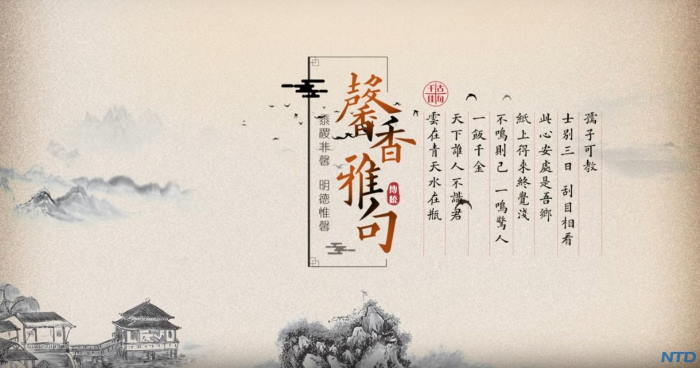 孺子可教
士別三日 刮目相看
此心安處是吾鄉
紙上得來終覺淺
不鳴則已 一鳴驚人
一飯千金
天下誰人不識君
雲在青天水在瓶
千古佳句
馨香雅句
黍稷非馨 明德惟馨
NTD